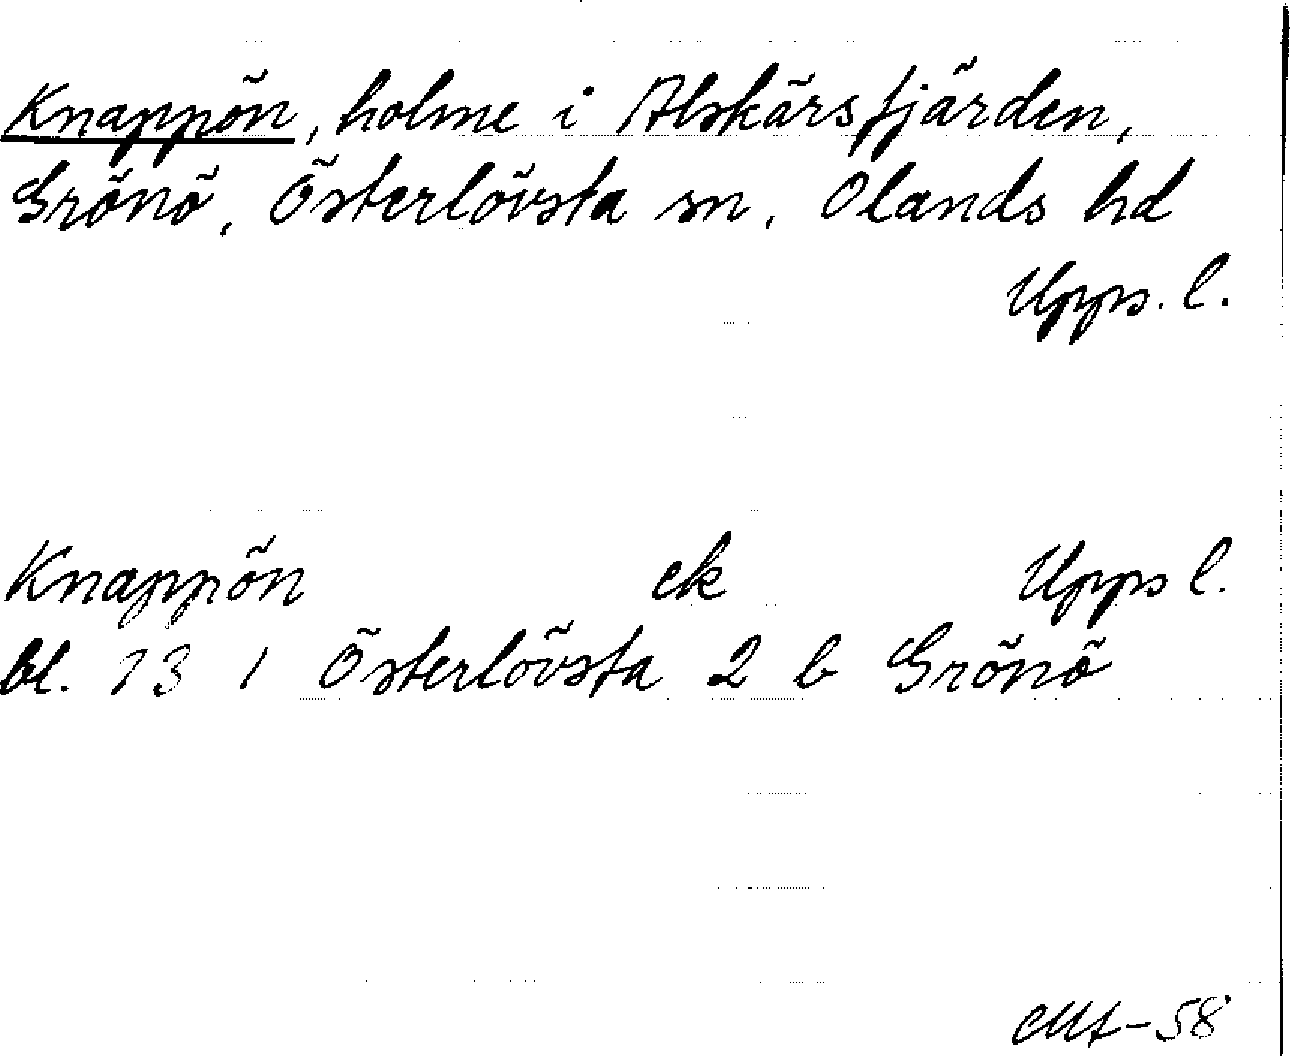 Knappön, holme i Alskärsfjärden,
Grönö, Österlövsta sn, Olands hd
Upps. l.
Knappön ek Upps l.
bl. 13 1 Österlövsta 2 b Grönö
-58